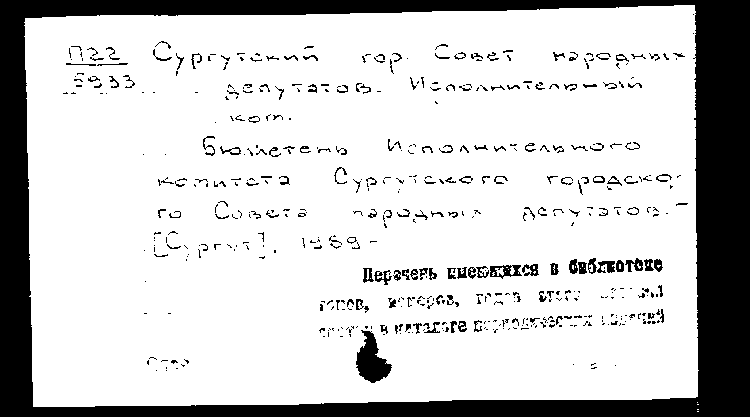 П22 Сургутский гор. Совет народных
5933 депутатов. Исполнительный
ком.
Бюллетень Исполнительного
комитета Сургутского городско-
го Совета народных депутатов.-
[Сургут], 1989-
Перечень имеющихся в библиотеке
томов, номеров, годов этого
в каталоге периодических изданий